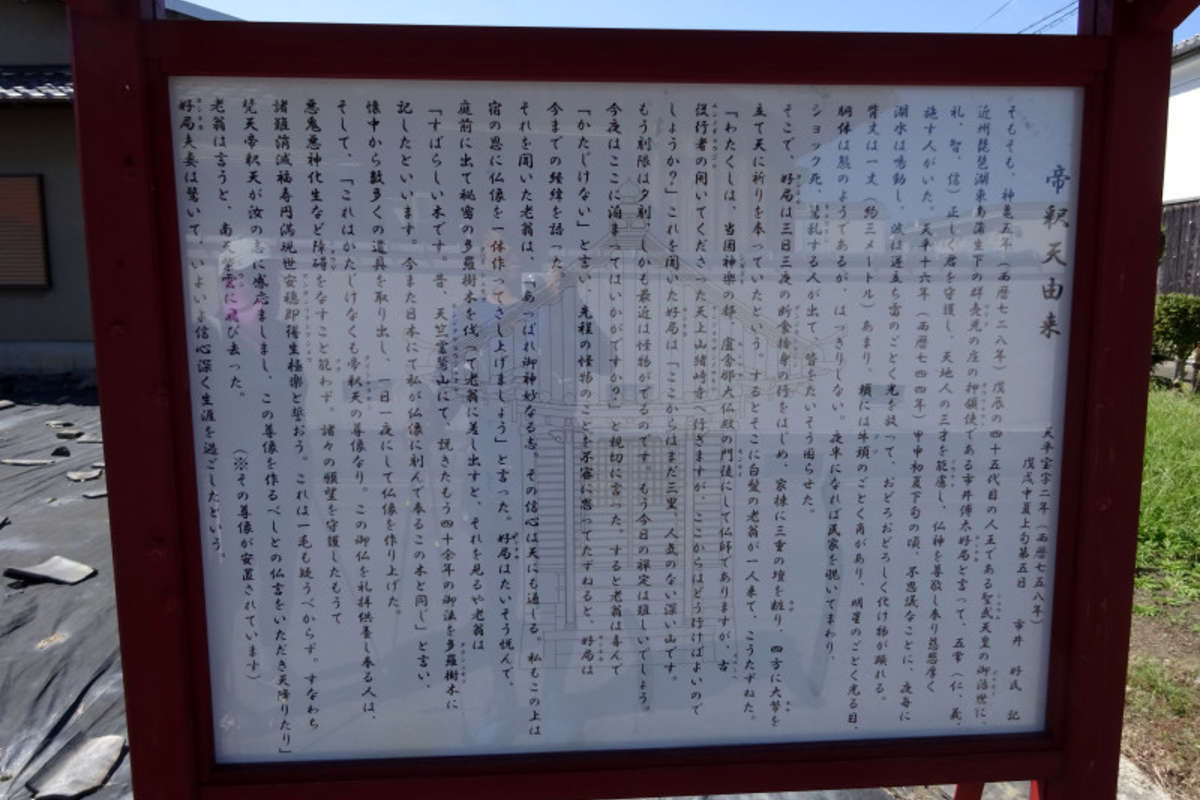 帝釈天由来
天平宝字二年(西暦七五八年)
戊戌中夏上旬第五日 市井 好氏 記
そもそも、神亀五年(西暦七二八年)戊辰の四十五代目の人王である聖武天皇の御治世に、
近州琵琶湖東あ蒲生下の郡亮光の庄の押領使である市井好局と言って、五常(仁、義、
礼、智、信)正しく君を守護し、天地人の三才を能慮し、仏神を尊敬し奉り慈悲厚く
施す人がいた。天平十六年(西暦七四四年)甲申初夏下旬の頃、不思議なことに、夜毎に
湖水は鳴動し、波は逆立ち雷のごとく光を放って、おどろおどろしく化け物が顕れる。
背丈は一丈(約三メートル)あまり、頭には牛頭のごとく角があり、明星のごとく光る目、
胴体は熊のようであるが、はっきりしない。夜半になれば民家を覗いてまわり、
ショック死、驚乱する人が出て、皆をたいそう困らせた。
そこで、好局は三日三夜の断食捨身の行をはじめ、家棟に三重の壇を粧り、四方に大幣を
立て天に祈りを奉っていたという。するとそこに白髪の老翁が一人来て、こうたずねた。
「わたくしは、当国神楽の梺、盧舎那大仏殿の門徒にして仏師でありますが、古
役行者の開いてくださった天上山猪崎寺へ行きますが、ここからはどう行けばよいので
しょうか?」これを聞いた好局は「ここからはまだ三里、人気のない深い山です。
もう刻限は夕刻、しかも最近は怪物がでるのです。もう今日の禅定は難しいでしょう。
今夜はここに泊まってはいかがですか?」と親切に言った。すると老翁は喜んで
「かたじけない」と言い、先程の怪物のことを不審に思ってたずねると、好局は
今までの経緯を語った。
それを聞いた老翁は、「あっぱれ御神妙なる志。その信心は天にも通じる、私もこの上は
宿の恩に仏像を一体作ってさし上げましょう」と言った。好局はたいそう悦んで、
庭前に出て秘蜜の多羅樹木を伐って老翁に差し出すと、それを見るや老翁は
「すばらしい木です。昔、天竺霊鷲山にて、説きたもう四十余年の御法を多羅樹木に
記したといいます。今また日本にて私が仏像に刻んで奉るこの木と同じ」と言い、
懐中から数多くの道具を取り出し、一日一夜にして仏像を作り上げた。
そして、「これはかたじけなくも帝釈天の尊像なり。この御仏を礼拝供養し奉る人は、
悪鬼悪神化生など障碍をなすこと能わず。諸々の願望を守護したもうて
諸難消滅福寿円満現世安穏即後生極楽と誓おう。これは一毛も疑うべからず。すなわち
梵天帝釈天が汝の志に感応ましまし、この尊像を作るべしとの仏言をいただき天降りたり」
老翁は言うと、南天紫雲に飛び去った。 (※その尊像が安置されています)
好局夫妻は驚いて、いよいよ信心深く生涯を過ごしたという。